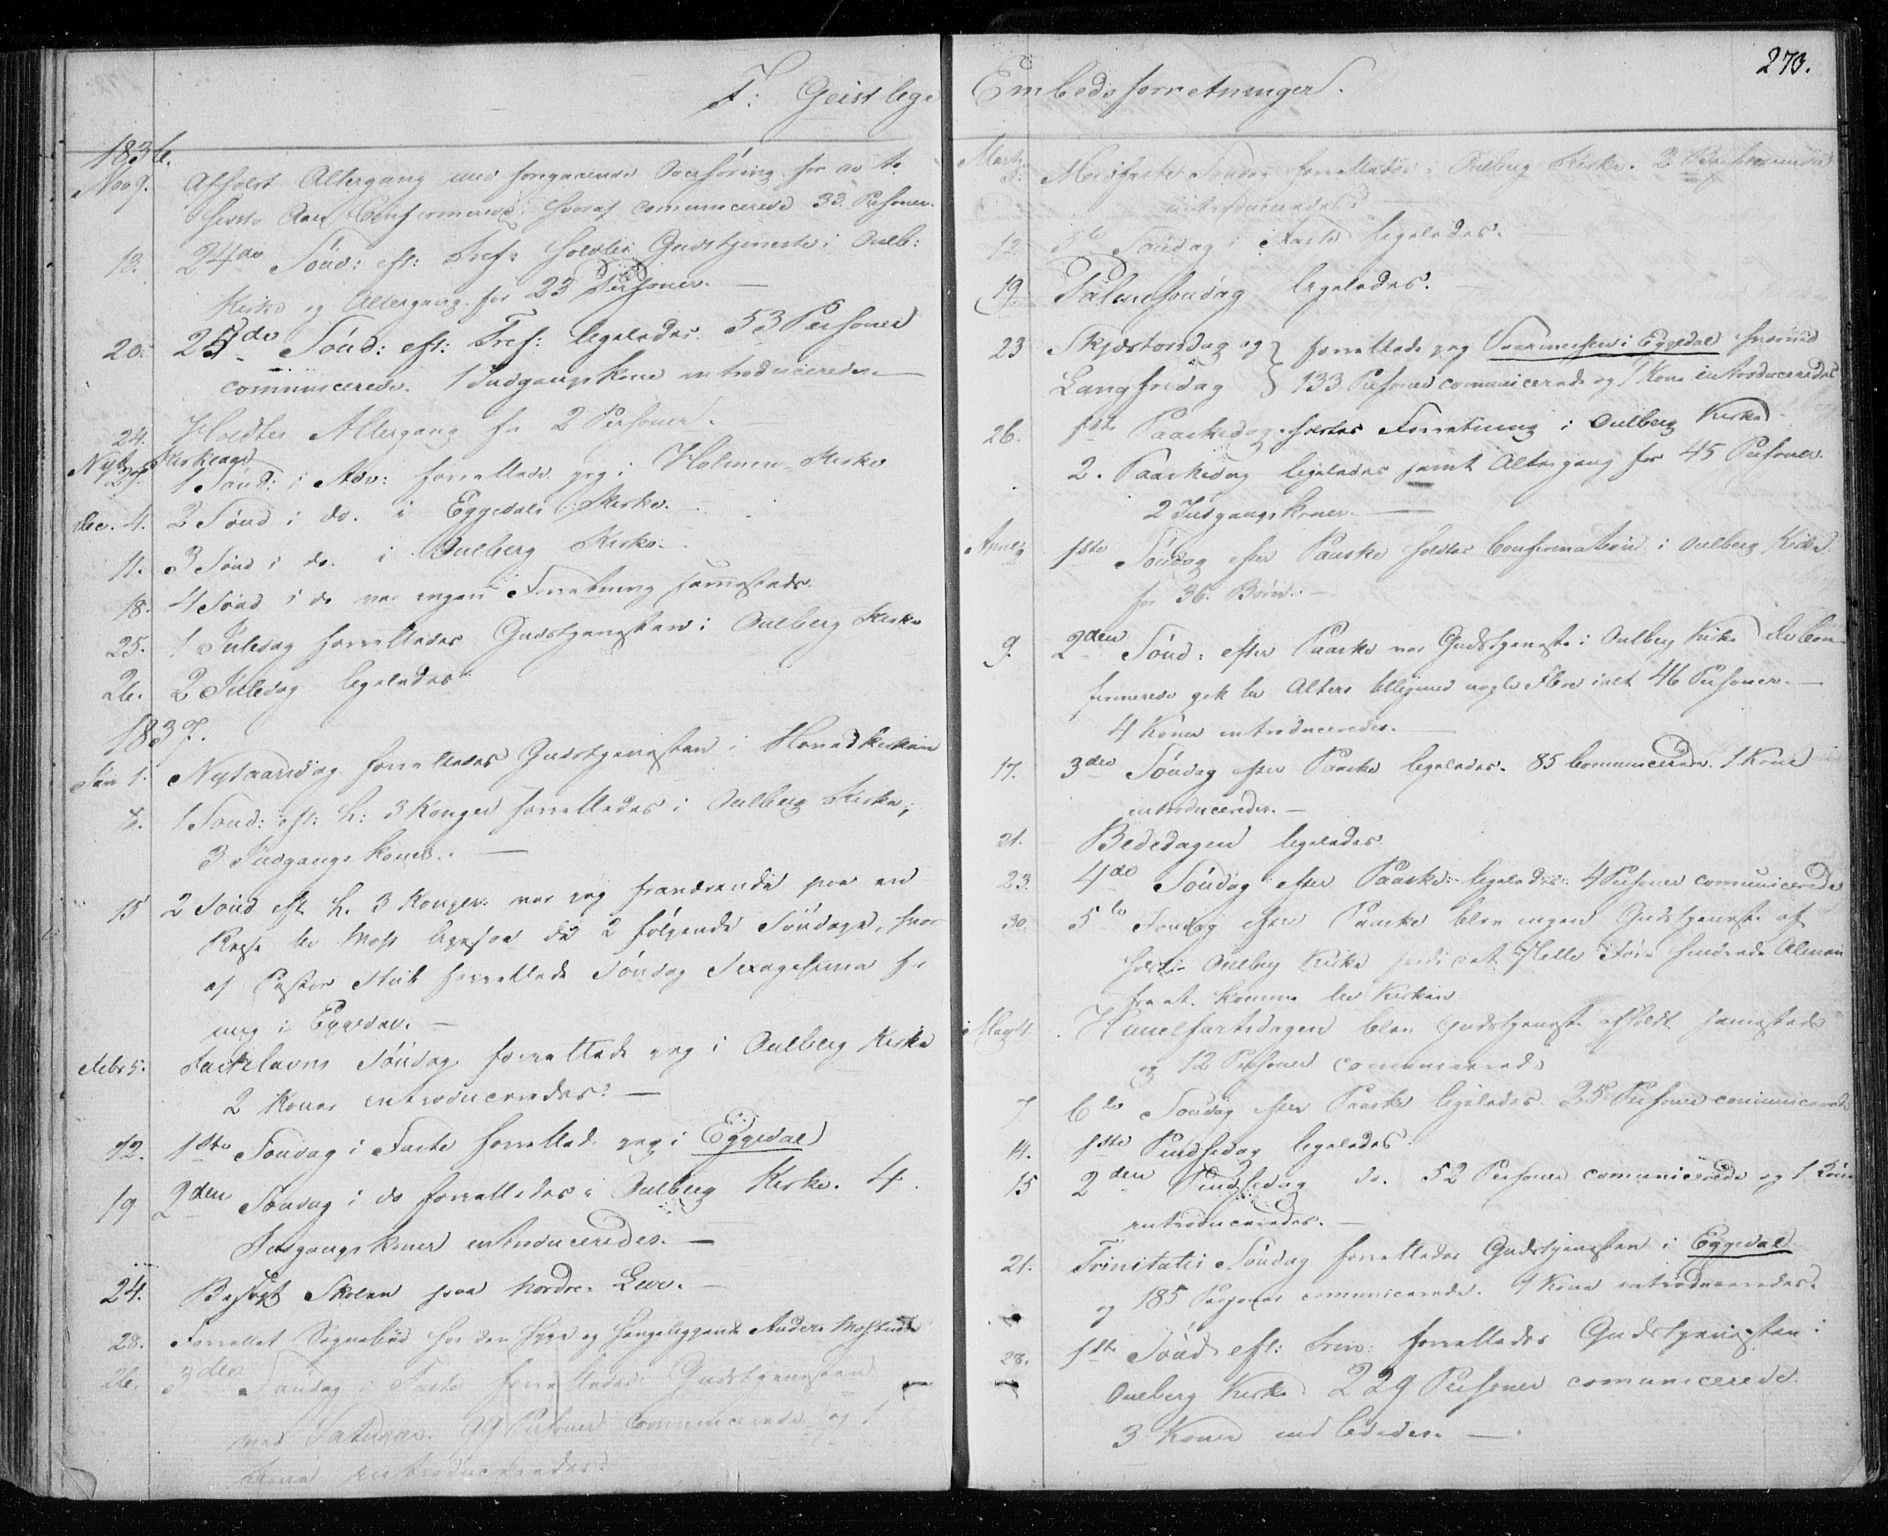 F: Geistlege
1836.
Nov 9. Afholdt Altergang med foregaaende Overhøring for de to
sidste Aars Confirmerede, hvoraf communicerede 33. Personer.
13. 24de Sønd: eft: Tref: holdtes Gudstjeneste i Oulb:
Kirke og Altergang for 23 Personer.
20. 25de Sønd: eft: Tref: legeledes 53 Personer
communicerede. 1 Indgangskone introduceredes.
24. Holdtes Altergang for 2 Personer.
Nyt Kirkeaar
27. 1 Sønd: i Adv: forrettede jeg i Holmen Kirke
Dec. 4. 2 Sønd i do. i Eggedals Kirke.
11. 3 Sønd i do. i Oulberg Kirke.
18. 4 Sønd i do var ingen Forretning samesteds.
25. 1 Juledag forrettedes Gudstjenesten i Oulberg Kirke
26. 2 Juledag legeledes
1837.
Jan 1. Nytaarsdag forrettedes Gudstjenesten i Hovedkirken
8. 1 Sønd: eft: h: 3 Konger forrettedes i Oulberg Kirke;
3 Indgangskoner.
15 2 Sønd eft. h. 3 Konger var jeg fraværende paa en
Reise til Moss ligesaa de 2 følgende Søndage, hvor
af Pastor Stub forrettede Søndag Sexagesima for
mig i Eggedal.
Febr 5. Fastelavns Søndag forrettede jeg i Oulberg Kirke
2 Koner introduceredes.
12. 1ste Søndag i Faste forrettede jeg i Eggedal
19 2den Søndag i do forrettedes i Oulberg Kirke. 4
Indgangskoner introduceredes.
24. Besøgt Skolen paa Nordre
28. Forrettet Sognebud hos den syge og sengeliggende Anders
26. 3die Søndag i Faste forrettedes Gudstjenesten
99 Personer communicerede og 1
Kone introduceredes.
Embedsforretninger.
273.
Marts
5. Midfaste Søndag forrettedes i Oulberg Kirke. 2
introduceredes.
12 5te Søndag i Faste legeledes.
19. Palmesøndag legeledes.
23 Skjærtorsdag og } forrettede jeg i Eggedal hvorved
Langfredag } 133 Personer comunicerede og 1 Kone introduceredes
26. 1ste Paaskedag holdtes Forretning i Oulberg Kirke
2. Paaskedag legeledes samt Altergang for 45 Personer.
2 Indgangskoner.
April 2 1ste Søndag efter Paaske holdtes Confirmation i Oulberg Kirke
for 36. Børn.
9. 2den Sønd: efter Paaske var Gudstjeneste i Oulberg Kirke de Con-
firmerede gik til Alters tilligemed nogle Flere ialt 46 Personer.
4 Koner introduceredes.
17. 3die Søndag efter Paaske legeledes. 85 Communicerede. 1 Kone
introduceredes.
21. Bededagen legeledes
23. 4de Søndag efter Paaske legeledes 4 Personer comunicerede
30. 5te Søndag efter Paaske blev ingen Gudstjeneste af
holdt i Oulberg Kirke fordi et hindrede Almuen
fra at komme til Kirken
Mai 4 Himelfartsdagen blev Gudstjeneste afholdt samesteds
og 12 Personer comunicerede
7 6te Søndag efter Paaske legeledes 35 Personer comunicerede
14. 1ste Pindsedag legeledes
15 2den Pindsedag do. 52 Personer comunicerede og 1 Kone
introduceredes.
21. Trinitatis Søndag forrettedes Gudstjenesten i Eggedal
og 185 Personer comunicerede. 1 Kone introduceredes.
28. 1ste Sønd. eft: Trin: forrettedes Gudstjenesten i
Oulberg Kirke 229 Personer comunicerede.
3 Koner indlededes.